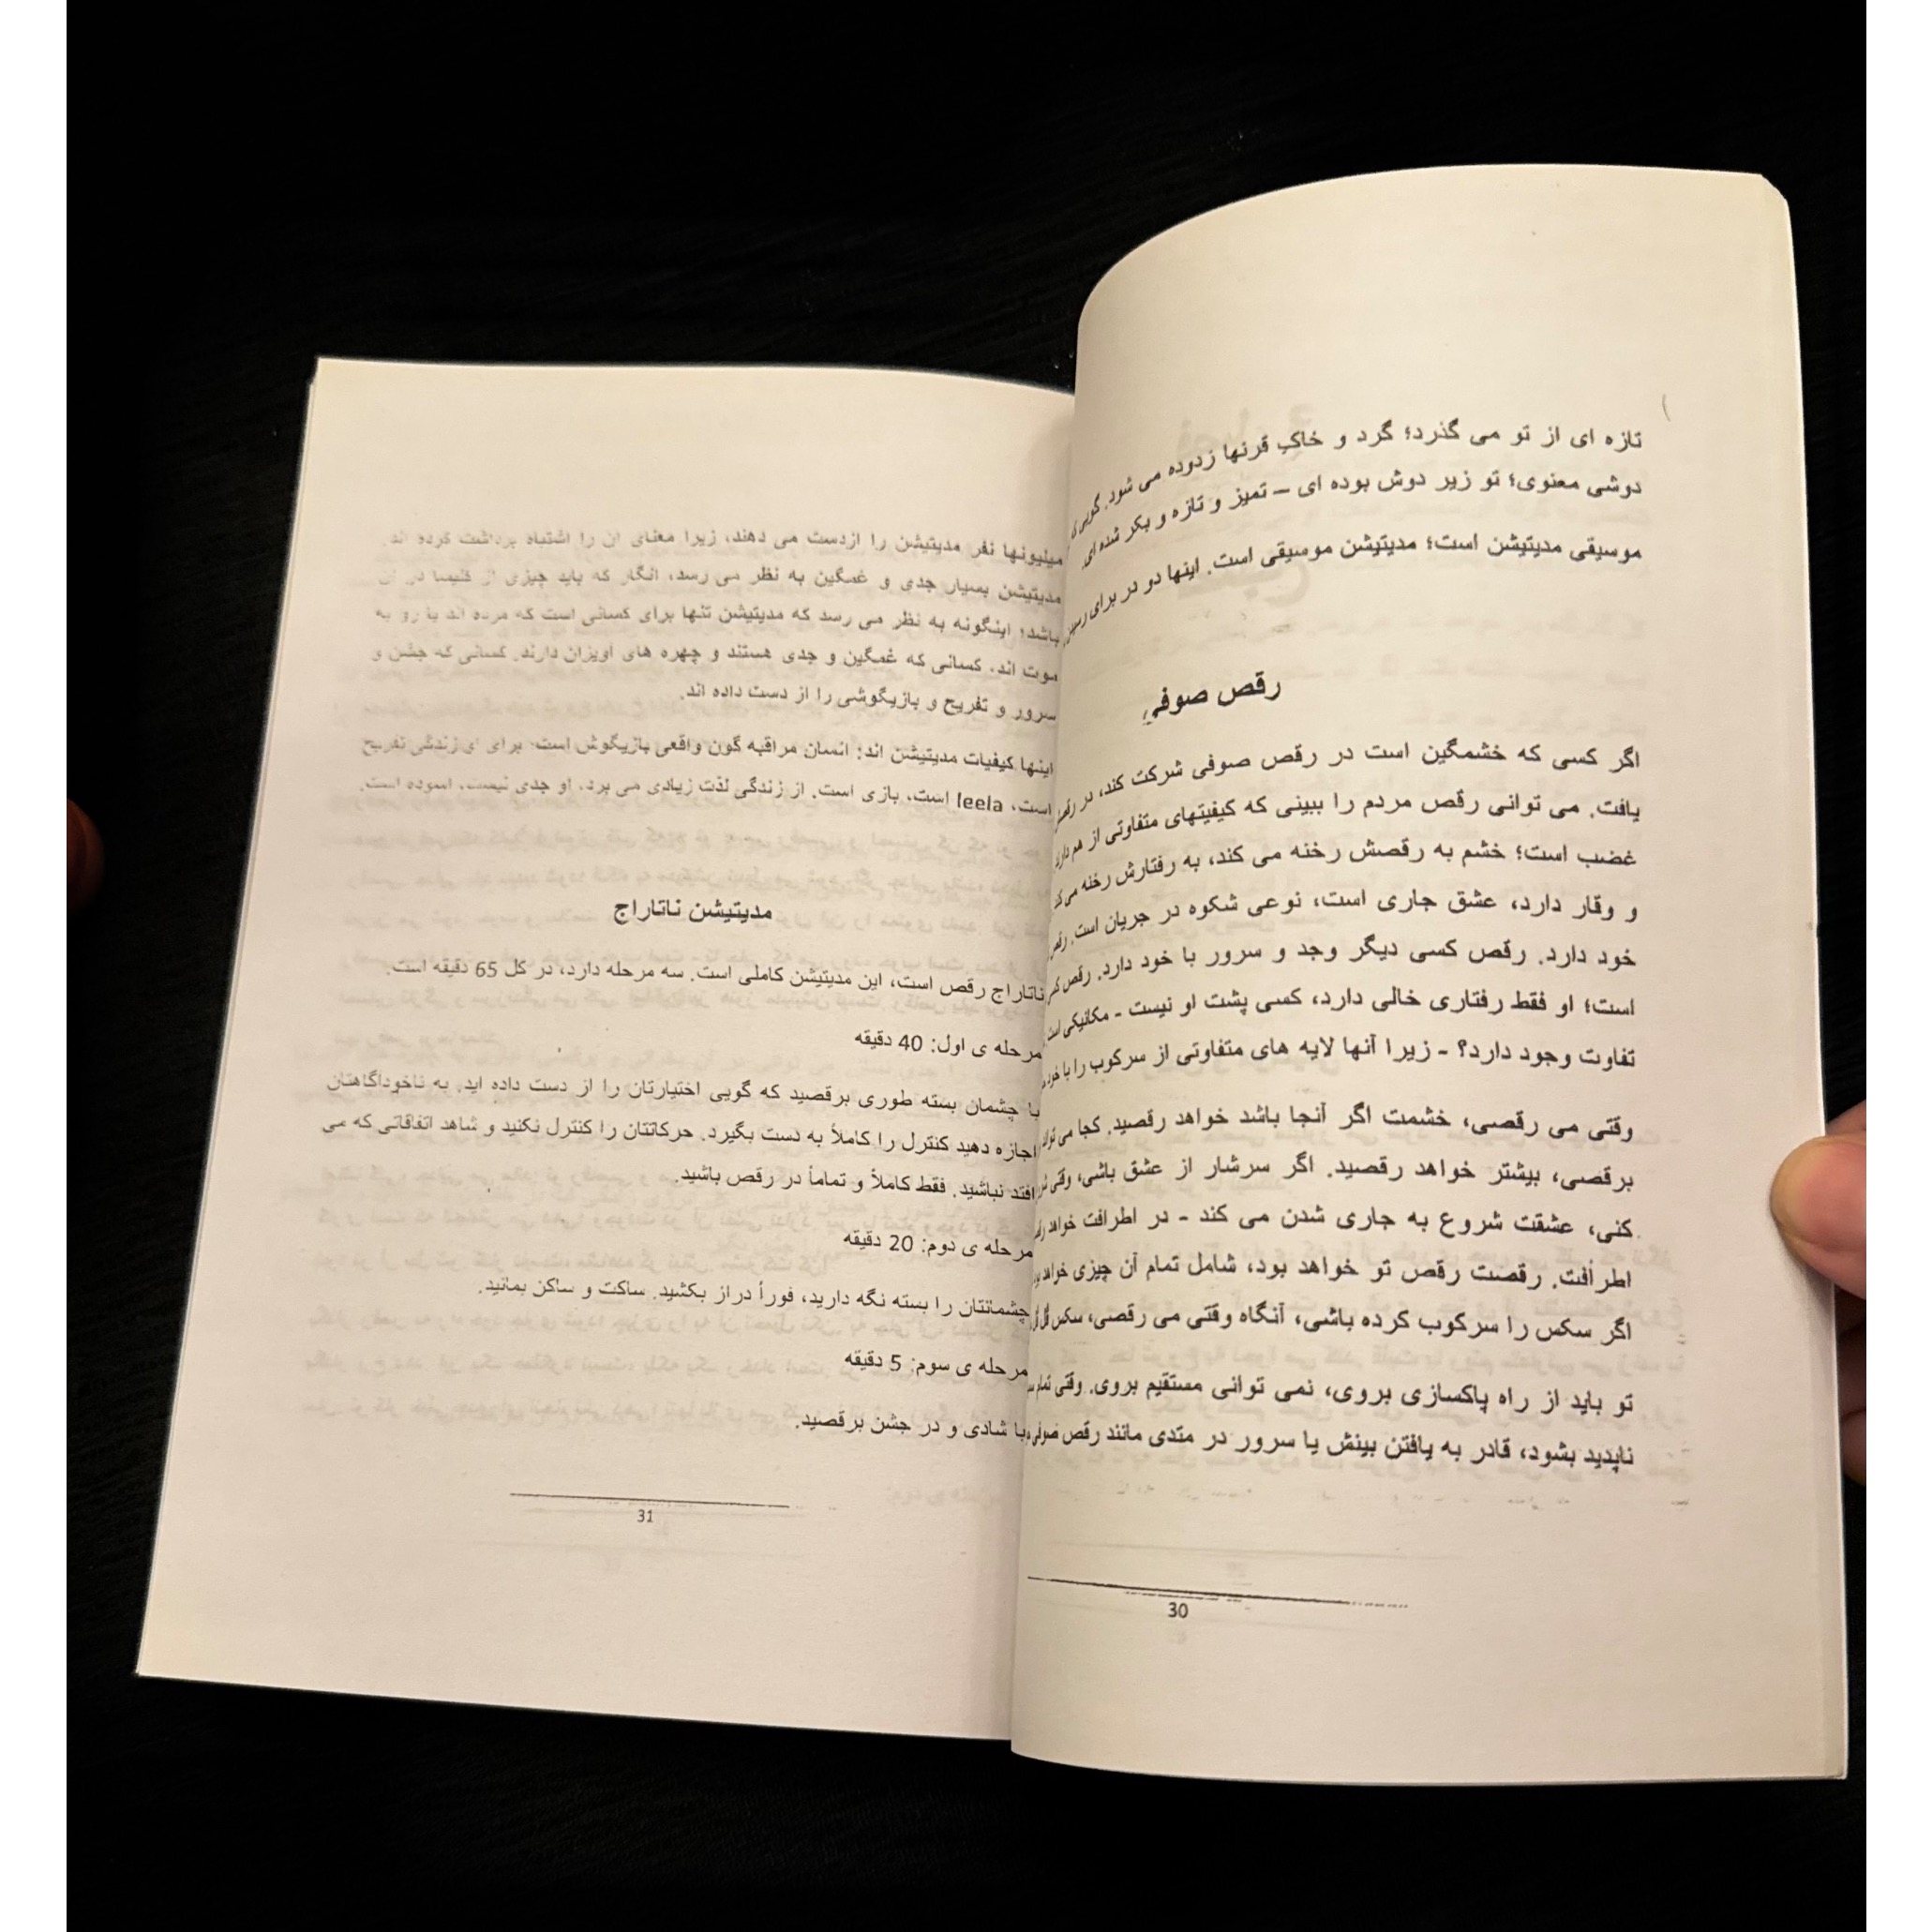 تازه ای از تو می گذرد؛ گرد و خاکِ قرنها زدوده می شود. گویی
دوشی معنوی؛ تو زیر دوش بوده ای – تمیز و تازه و بکر شده ای.
موسیقی مدیتیشن است؛ مدیتیشن موسیقی است. اینها دو در برای
رقص صوفی
اگر کسی که خشمگین است در رقص صوفی شرکت کند، در
یافت. می توانی رقص مردم را ببینی که کیفیتهای متفاوتی از هم دارند
غضب است؛ خشم به رقصش رخنه می کند، به رفتارش رخنه می
و وقار دارد، عشق جاری است، نوعی شکوه در جریان است.
خود دارد. رقص کسی دیگر وجد و سرور با خود دارد. رقص
است؛ او فقط رفتاری خالی دارد، کسی پشت او نیست - مکانیکی است
تفاوت وجود دارد؟ - زیرا آنها لایه های متفاوتی از سرکوب را با
وقتی می رقصی، خشمت اگر آنجا باشد خواهد رقصید. کجا می
برقصی، بیشتر خواهد رقصید. اگر سرشار از عشق باشی، وقتی
کنی، عشقت شروع به جاری شدن می کند - در اطرافت خواهد
اطرافت. رقصت رقص تو خواهد بود، شامل تمام آن چیزی خواهد
اگر سکس را سرکوب کرده باشی، آنگاه وقتی می رقصی، سکس
تو باید از راه پاکسازی بروی، نمی توانی مستقیم بروی. وقتی تمام
ناپدید بشود، قادر به یافتن بینش یا سرور در متدی مانند رقص صوفی
30
میلیونها نفر مدیتیشن را ازدست می دهند، زیرا معنای آن را اشتباه برداشت کرده اند.
مدیتیشن بسیار جدی و غمگین به نظر می رسد، انگار که باید چیزی از کلیسا در آن
باشد؛ اینگونه به نظر می رسد که مدیتیشن تنها برای کسانی است که مرده اند یا رو به
موت اند، کسانی که غمگین و جدی هستند و چهره های آویزان دارند. کسانی که جشن و
سرور و تفریح و بازیگوشی را از دست داده اند.
اینها کیفیات مدیتیشن اند: انسان مراقبه گون واقعی بازیگوش است؛ برای او زندگی تفریح
است، leela است، بازی است. از زندگی لذت زیادی می برد. او جدی نیست، آسوده است.
مدیتیشن ناتاراج
ناتاراج رقص است، این مدیتیشن کاملی است. سه مرحله دارد، در کل 65 دقیقه است.
مرحله ی اول: 40 دقیقه
با چشمان بسته طوری برقصید که گویی اختیارتان را از دست داده اید. به ناخودآگاهتان
اجازه دهید کنترل را کاملاً به دست بگیرد. حرکاتتان را کنترل نکنید و شاهد اتفاقاتی که می
افتد نباشید. فقط کاملاً و تماماً در رقص باشید.
مرحله ی دوم: 20 دقیقه
چشمانتان را بسته نگه دارید، فوراً دراز بکشید. ساکت و ساکن بمانید.
مرحله ی سوم: 5 دقیقه
با شادی و در جشن برقصید.
31